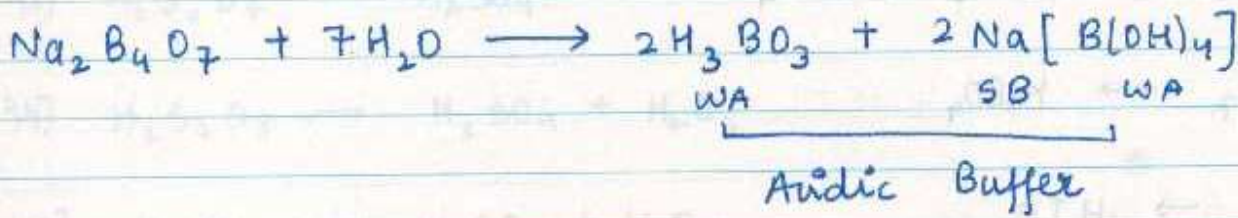 Na₂B₄O₇ + 7H₂O ⟶ 2H₃BO₃ + 2Na[B(OH)₄]
WA SB WA
Acidic Buffer